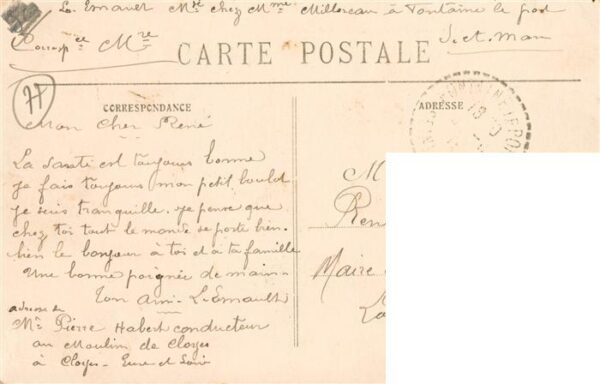 L. Emault Mre chez Mme Milloreau à Fontaine le port
Corresp ce Mre S. et. Marn
CARTE POSTALE
77
CORRESPONDANCE
ADRESSE
Mon Cher René
La santé est toujours bonne
je fais toujours mon petit boulot
je suis tranquille. je pense que
chez toi tout le monde se porte bien.
bien le bonjour à toi et à ta famille
Une bonne poignée de main -
Ton ami - L. Emault
adresse de
Mr Pierre Habert conducteur
au Moulin de Cloyes
à Cloyes - Eure et Loir
M
Ren
Maire